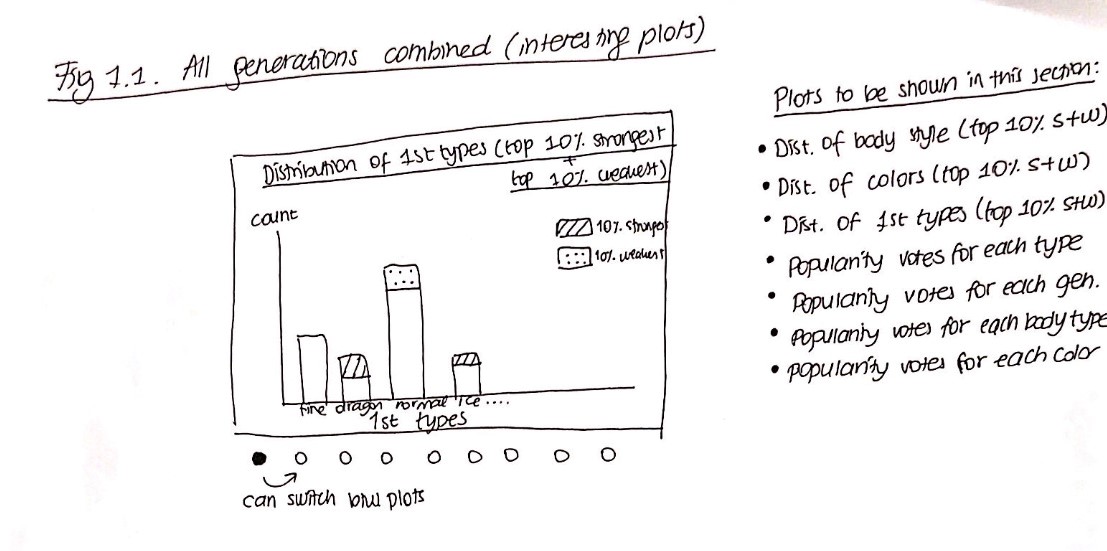 Fig 1.1. All generations combined (interesting plots)
Distribution of 1st types (top 10% strongest
+
top 10% weakest)
count
10% stronges
10% weakest
fire dragon normal ice ....
1st types
can switch b/w plots
Plots to be shown in this section:
• Dist. of body style (top 10% s+w)
• Dist. of colors (top 10% s+w)
• Dist. of 1st types (top 10% s+w)
• Popularity votes for each type
• Popularity votes for each gen.
• Popularity votes for each body type
• popularity votes for each color